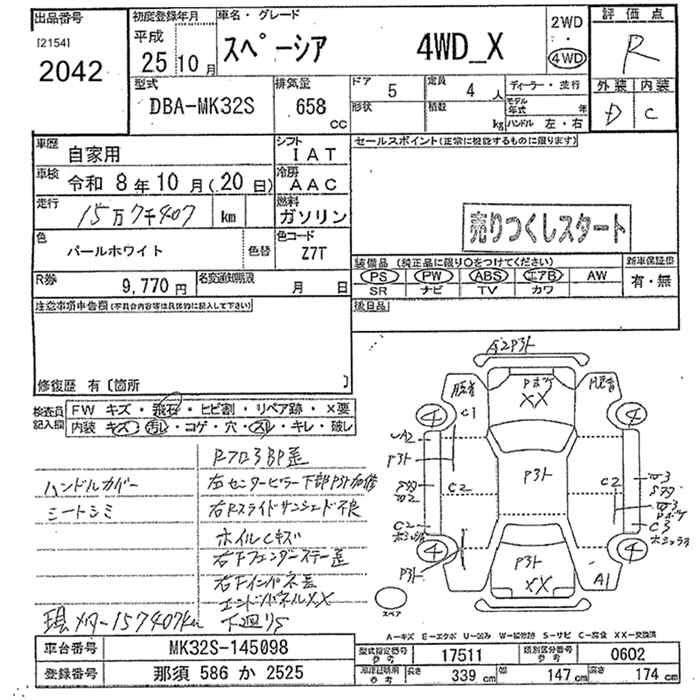 出品番号 初度登録年月 車名・グレード 2WD 評価点
[2154] 平成 スペーシア 4WD_X ・ R
2042 25年10月 4WD 外装 内装
型式 排気量 ドア 5 定員 4人 ディーラー・並行 D C
DBA-MK32S 658 CC 形状 積数 kg モデル年式 年
ハンドル 左・右
車歴 自家用 シフト IAT セールスポイント(正常に機能するものに限ります)
車検 令和 8年10月(20日) 冷房 AAC
走行 15万7千407 km 燃料 ガソリン 売りつくしスタート
色 パールホワイト 色替 色コード Z7T
装備品 (純正品に限り○をつけてください) 新車保証書
PS PW ABS エアB AW 有・無
SR ナビ TV カワ
R券 9,770円 名変通知期限 月 日
注意事項申告欄(不具合内容等は具体的に記入して下さい) 後日品
修復歴 有〔箇所 〕
検査員記入欄 FW キズ・飛石・ヒビ割・リペア跡・X要
内装 キズ・汚レ・コゲ・穴・スレ・キレ・破レ
ハンドルカバー
シートシミ
右Fスライドサンシェード不良
ホイルCキズ
右Fフェンダーステー歪
エンドパネルXX
下廻りS
現メーター157407km
A2P3ト
XX
C1
4 4
A2
P3ト
P3ト
C2 C2
C2
C3
4 4
P3ト
P3ト
XX
A1
スペア
A-キズ E-エクボ U-凹み W-補修跡 S-サビ C-腐食 XX-交換済
車台番号 MK32S-145098 型式指定番号 参考 17511 類別区分番号 参考 0602
登録番号 那須 586 か 2525 長さ 339 cm 幅 147 cm 高さ 174 cm